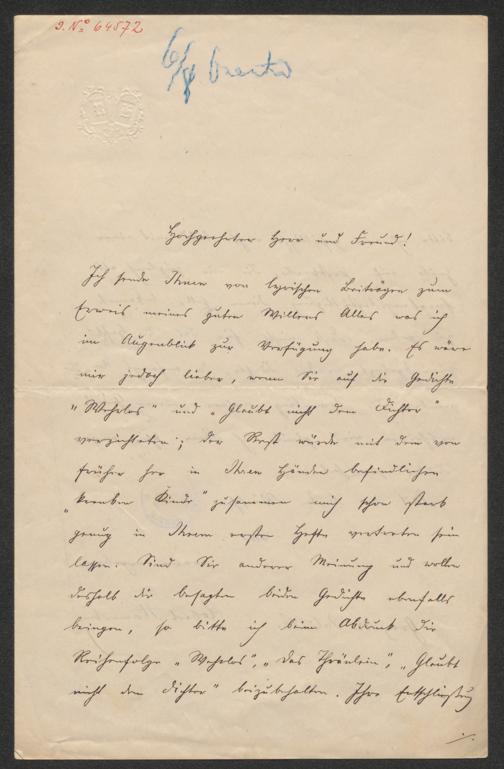 I. N° 64872
6/4 beantw
Hochgeehrter Herr und Freund!
Ich sende Ihnen von lyrischen Beiträgen zum
Erweis meines guten Willens Alles was ich
im Augenblick zur Verfügung habe. Es wäre
mir jedoch lieber, wenn Sie auf die Gedichte
„Wehrlos" und „Glaubt nicht dem Dichter"
verzichteten; der Rest würde mit dem von
früher her in Ihren Händen befindlichen
„kranken Kinde" zusammen mich schon stark
genug in Ihrem ersten Hefte vertreten sein
lassen. Sind Sie anderer Meinung und wollen
deshalb die besagten beiden Gedichte ebenfalls
bringen, so bitte ich beim Abdruck die
Reihenfolge „Wehrlos", „Das Thränlein", „Glaubt
nicht dem Dichter" beizubehalten. Ihre Entschließung
./.